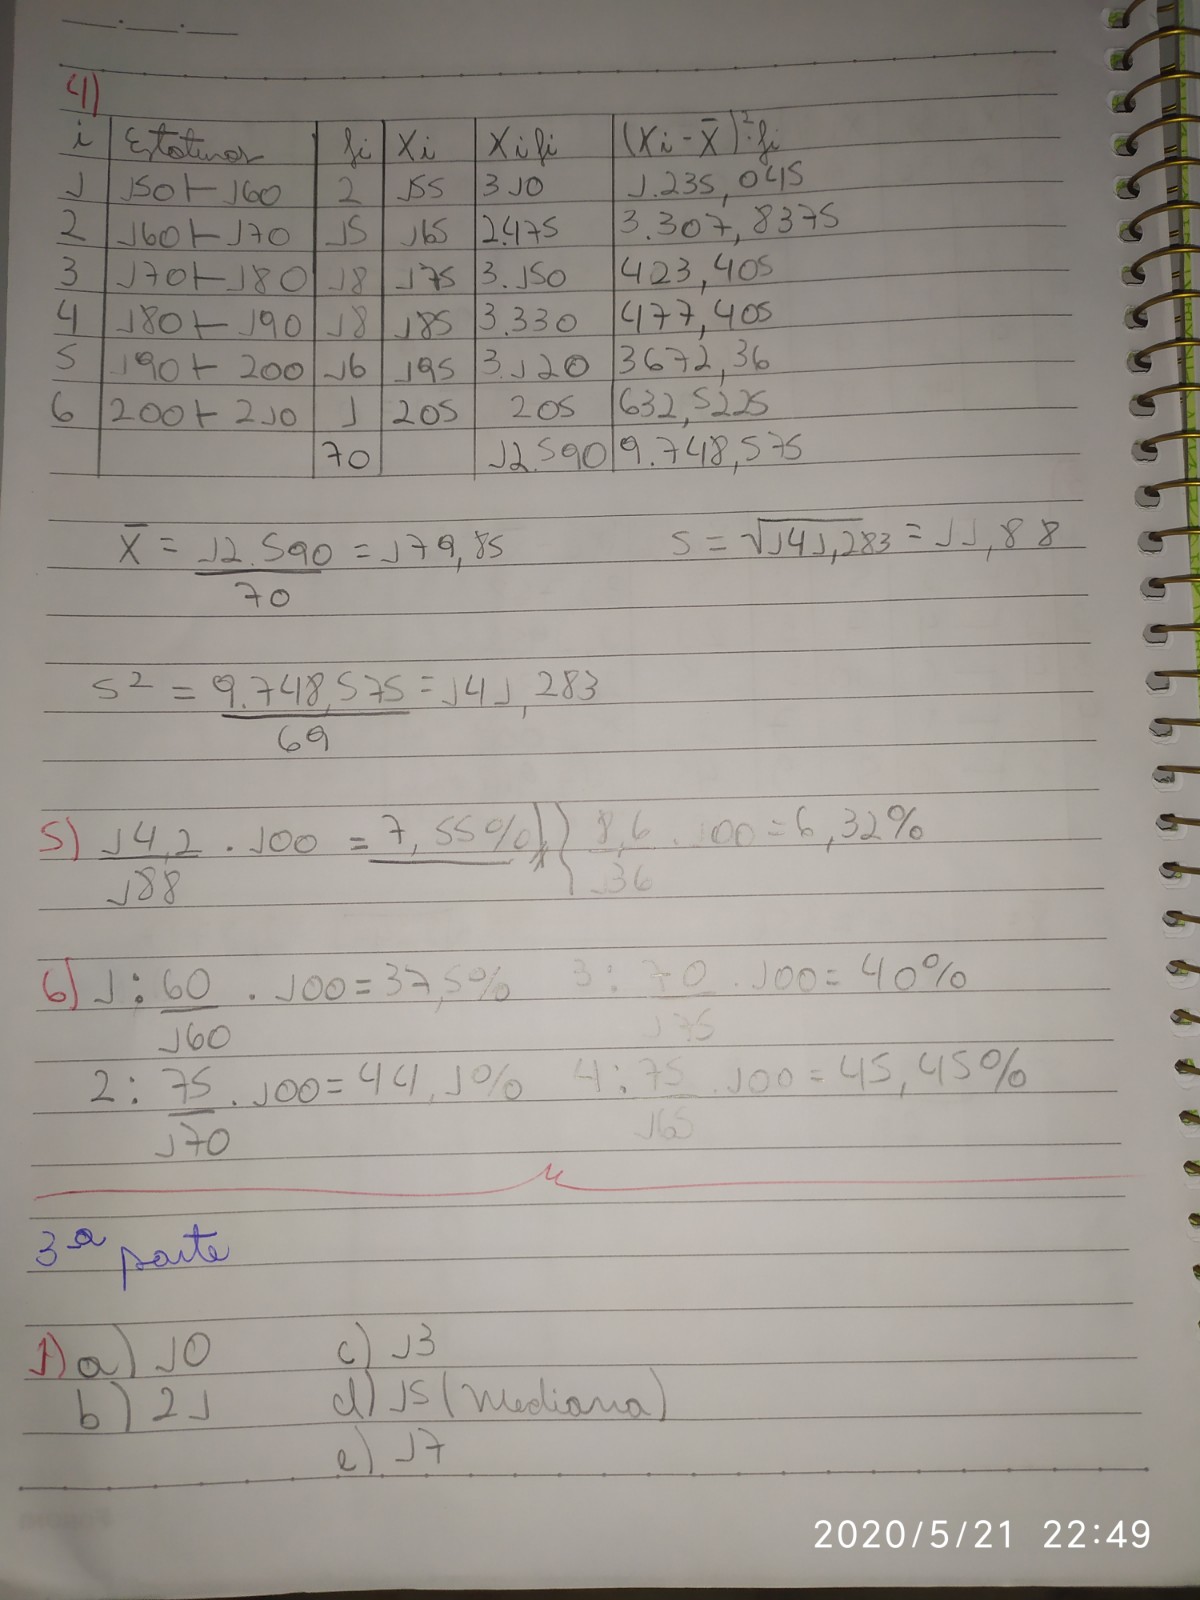 4)
i Estaturas fi Xi Xifi (Xi - X̄)²·fi
1 150 ⊢ 160 2 155 310 1.235,045
2 160 ⊢ 170 15 165 2.475 3.307,8375
3 170 ⊢ 180 18 175 3.150 423,405
4 180 ⊢ 190 18 185 3.330 477,405
5 190 ⊢ 200 16 195 3.120 3672,36
6 200 ⊢ 210 1 205 205 632,5225
70 12.590 9.748,575
X̄ = 12.590 = 179,85 S = √141,283 = 11,88
70
S² = 9.748,575 = 141,283
69
5) 14,2 . 100 = 7,55% 8,6 . 100 = 6,32%
188 136
6) 1: 60 . 100 = 37,5% 3: 70 . 100 = 40%
160 175
2: 75 . 100 = 44,1% 4: 75 . 100 = 45,45%
170 165
3ª parte
1) a) 10 c) 13
b) 21 d) 15 (Mediana)
e) 17
2020/5/21 22:49